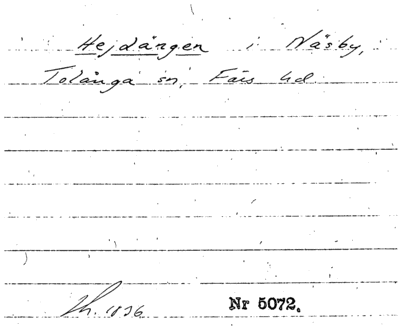 Hejdängen i Näsby,
Tolånga sn, Färs hd
1836 Nr 5072.